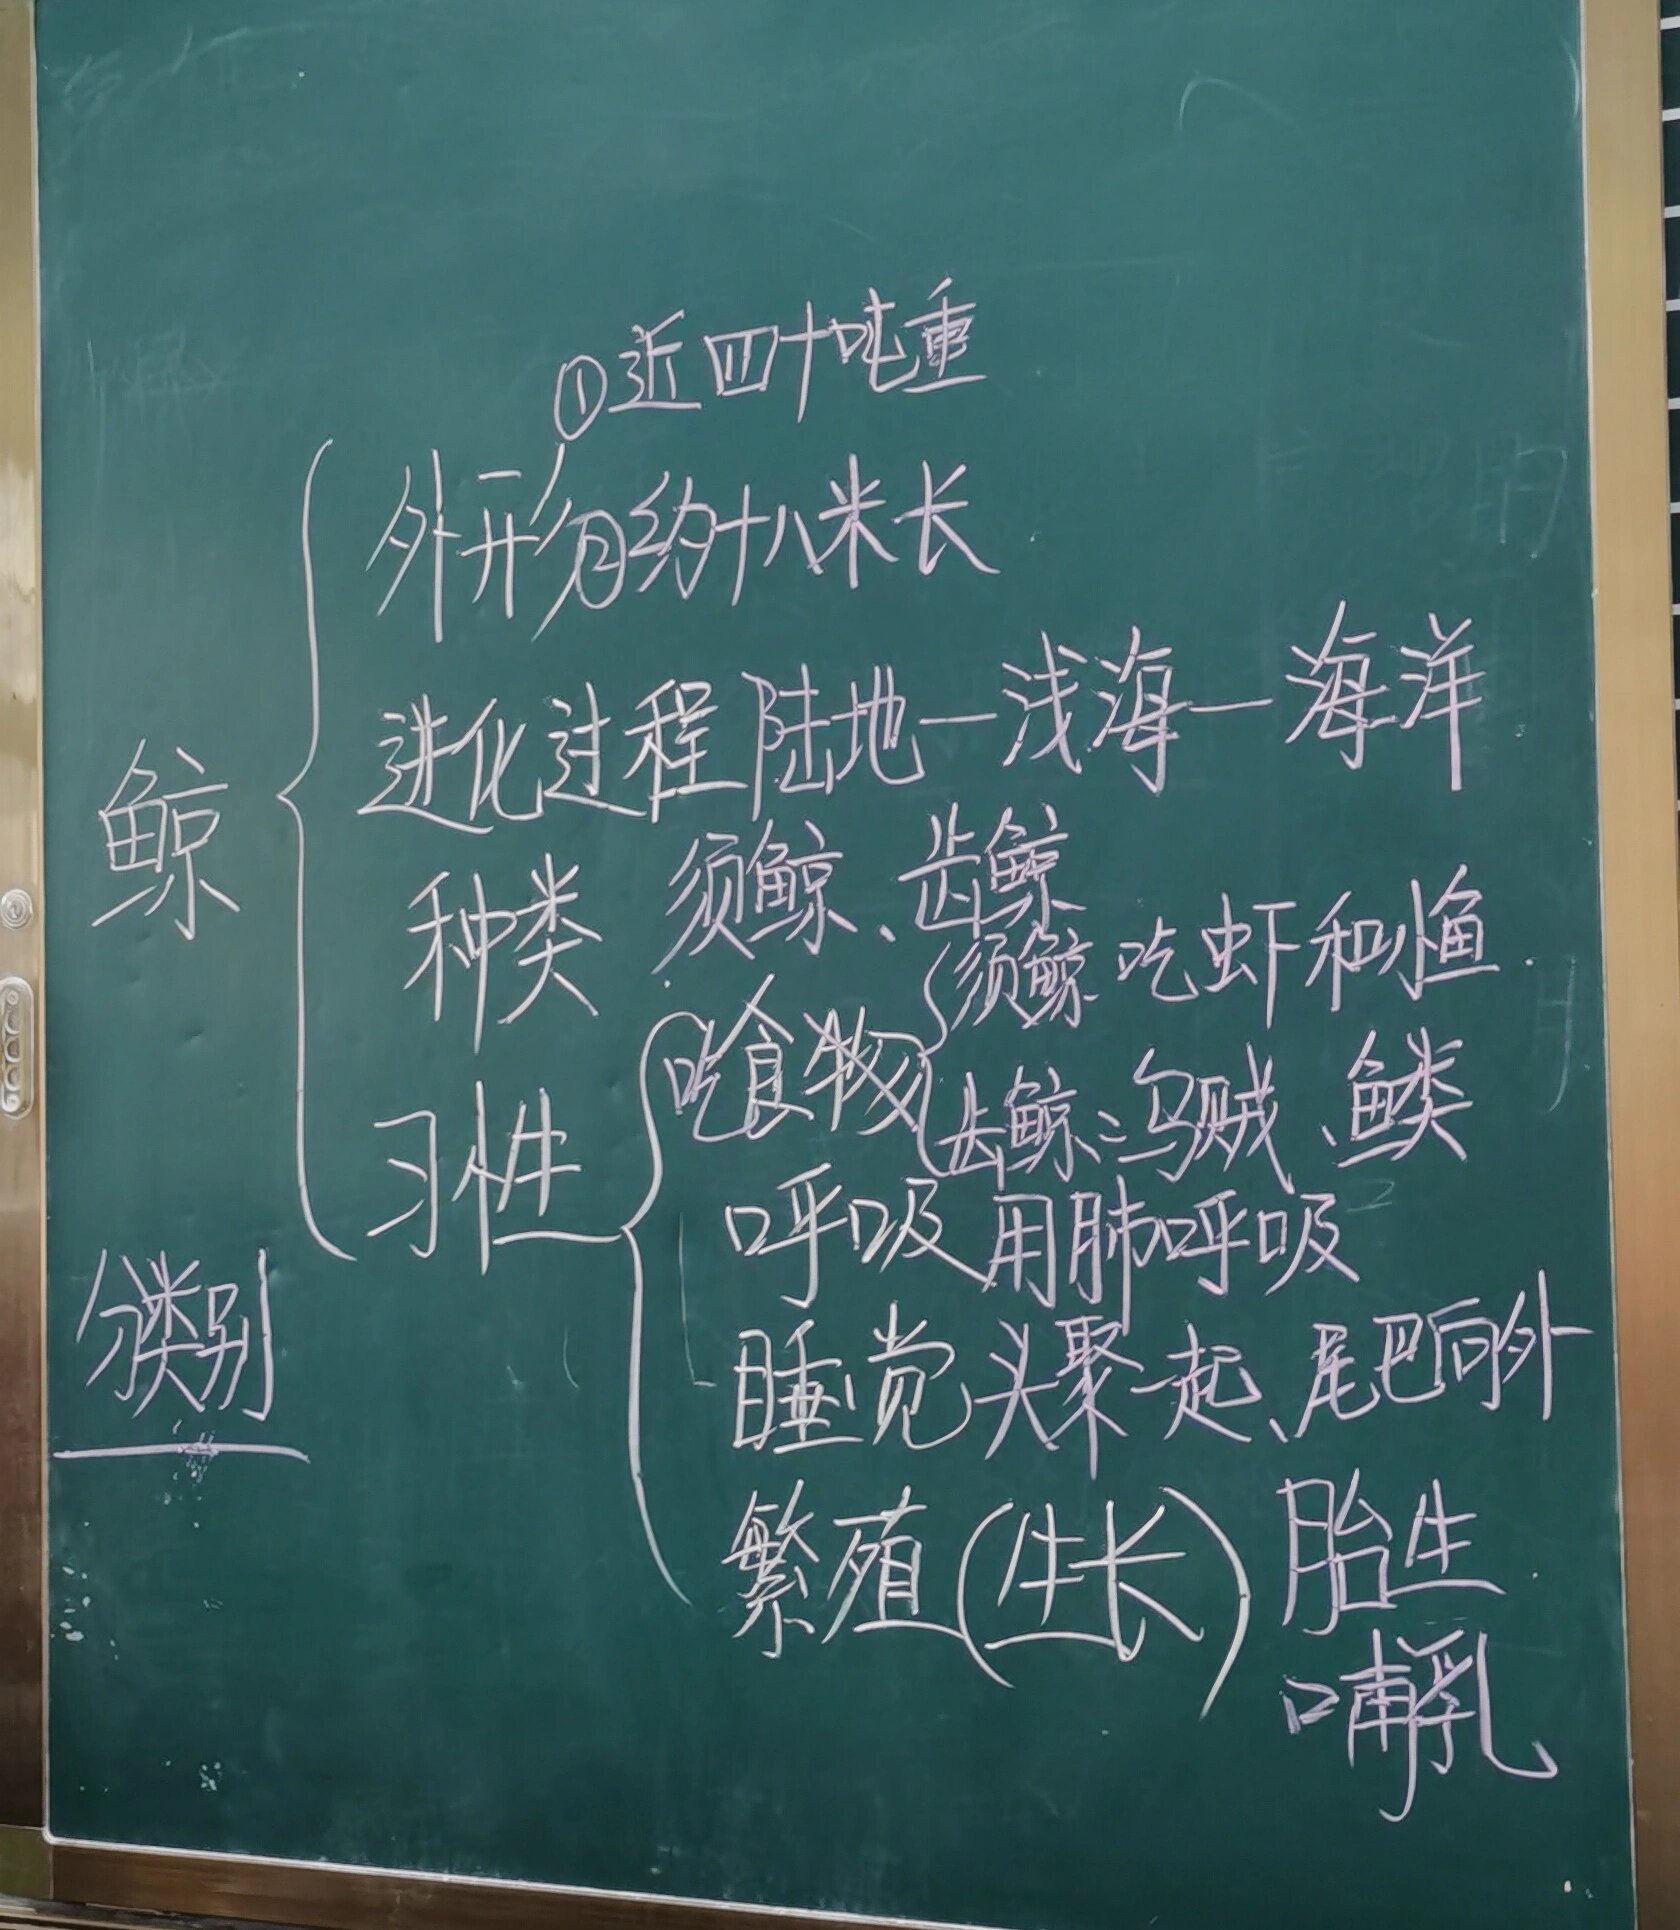 ①近四十吨重
外形②约十八米长
进化过程 陆地—浅海—海洋
鲸
种类 须鲸、齿鲸
须鲸 吃虾和小鱼
吃食物
齿鲸:乌贼、鱼类
习性
呼吸 用肺呼吸
分类别
睡觉 头聚一起、尾巴向外
繁殖(生长) 胎生
哺乳